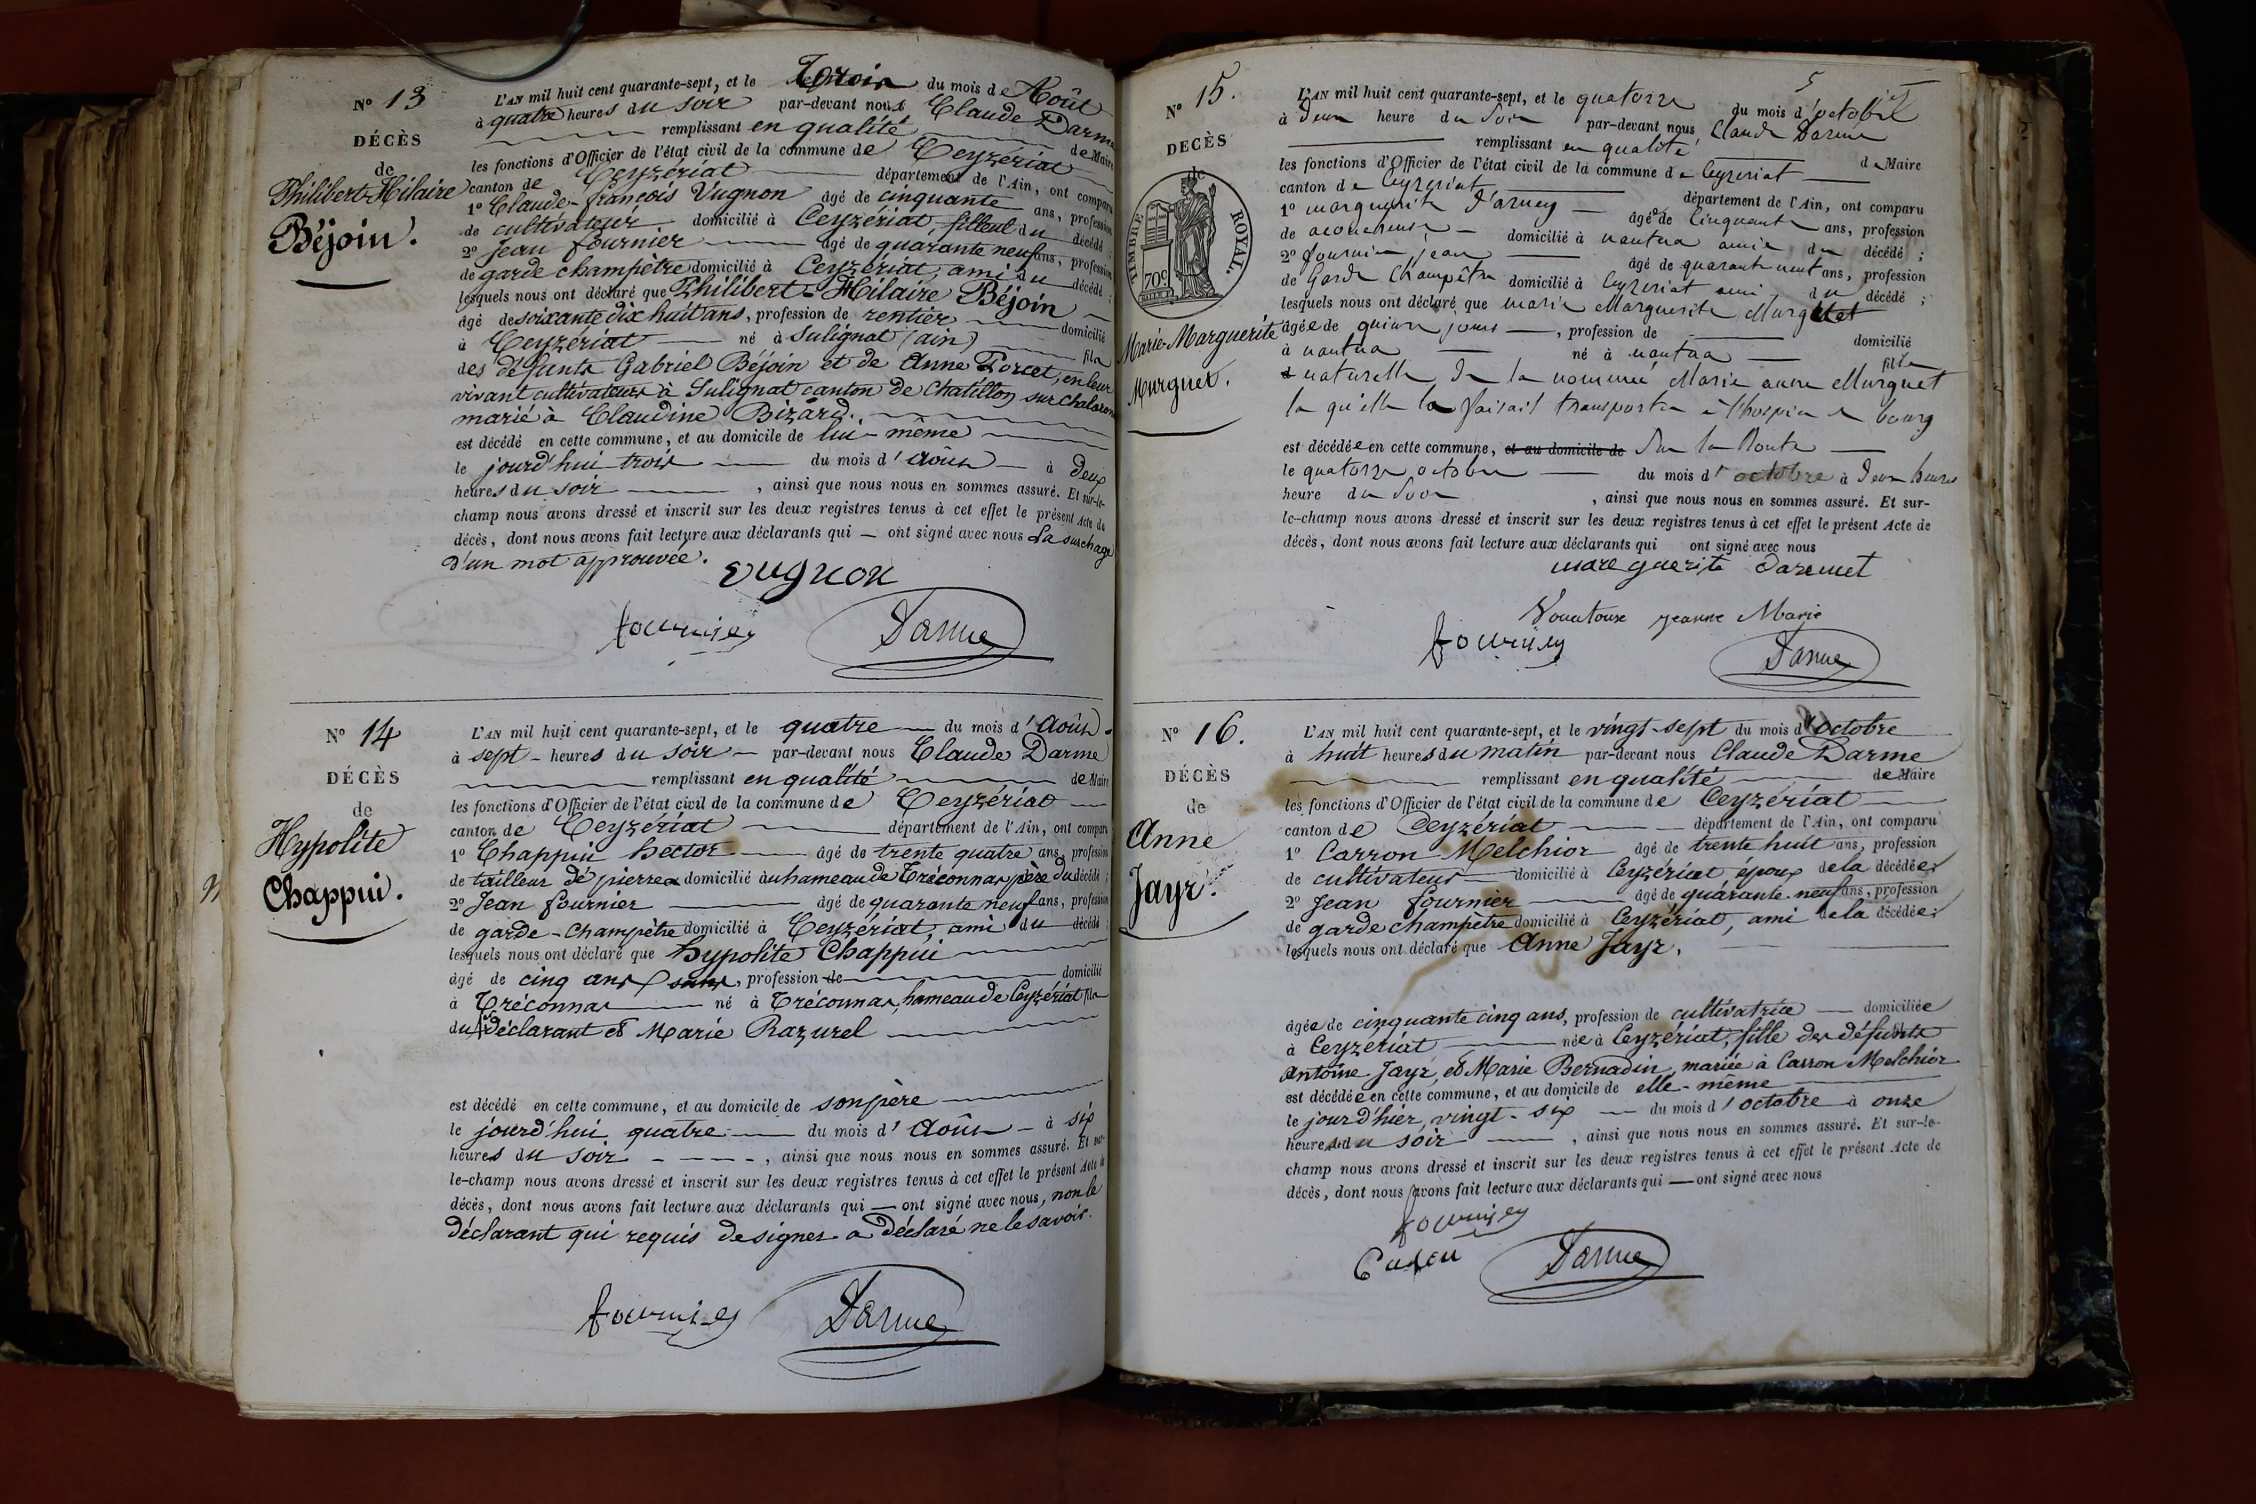 N° 13
DÉCÈS
de
Philibert-Hilaire
Béjoin.
L'AN mil huit cent quarante-sept, et le Trois du mois de Août
à quatre heures du soir par-devant nous Claude Darme
remplissant en qualité de Maire
les fonctions d'Officier de l'état civil de la commune de Ceyzériat
canton de Ceyzériat département de l'Ain, ont comparu
1° Claude-françois Vugnon âgé de cinquante ans, profession
de cultivateur domicilié à Ceyzériat, filleul du décédé ;
2° Jean fournier âgé de quarante neuf ans, profession
de garde champêtre domicilié à Ceyzériat, ami du décédé ;
lesquels nous ont déclaré que Philibert-Hilaire Béjoin
âgé de soixante dix huit ans, profession de rentier domicilié
à Ceyzériat né à Sulignat (ain) fils
des défunts Gabriel Béjoin et de Anne Porcet, en leur
vivant cultivateurs à Sulignat canton de Chatillon sur Chalaronne
marié à Claudine Bizard.
est décédé en cette commune, et au domicile de lui-même
le jourd'hui trois du mois d'Août à deux
heures du soir, ainsi que nous nous en sommes assuré. Et sur-le-
champ nous avons dressé et inscrit sur les deux registres tenus à cet effet le présent Acte de
décès, dont nous avons fait lecture aux déclarants qui — ont signé avec nous La surchage
d'un mot approuvée.
Vugnon
fournier Darme
N° 14
DÉCÈS
de
Hypolite
Chappui.
L'AN mil huit cent quarante-sept, et le quatre du mois d'Août
à sept heures du soir par-devant nous Claude Darme
remplissant en qualité de Maire
les fonctions d'Officier de l'état civil de la commune de Ceyzériat
canton de Ceyzériat département de l'Ain, ont comparu
1° Chappui hector âgé de trente quatre ans, profession
de tailleur de pierres domicilié au hameau de Tréconnas, père du décédé ;
2° Jean fournier âgé de quarante neuf ans, profession
de garde-champêtre domicilié à Ceyzériat, ami du décédé ;
lesquels nous ont déclaré que hypolite Chappui
âgé de cinq ans sans, profession de domicilié
à Tréconnas né à Tréconnas, hameau de Ceyzériat fils
du déclarant et Marie Razurel
est décédé en cette commune, et au domicile de son père
le jourd'hui quatre du mois d'Août à six
heures du soir, ainsi que nous nous en sommes assuré. Et sur-
le-champ nous avons dressé et inscrit sur les deux registres tenus à cet effet le présent Acte de
décès, dont nous avons fait lecture aux déclarants qui — ont signé avec nous, non le
déclarant qui requis de signer a déclaré ne le savoir.
fournier Darme
5
N° 15.
DÉCÈS
de
TIMBRE ROYAL.
70c
Marie-Marguerite
Murguet.
L'AN mil huit cent quarante-sept, et le quatorze du mois d'octobre
à deux heure du Soir par-devant nous Claude Darme
remplissant en qualité de Maire
les fonctions d'Officier de l'état civil de la commune de Ceyzeriat
canton de Ceyzeriat département de l'Ain, ont comparu
1° marguerite âgée de Cinquante ans, profession
de domicilié à nantua amie du décédé ;
2° fournier jean âgé de quarante neuf ans, profession
de Garde Champêtre domicilié à Ceyzeriat ami du décédé ;
lesquels nous ont déclaré que marie Marguerite Murguet
âgée de quinze jours, profession de domicilié
à nantua né à nantua fille
naturelle de la nommée Marie anne Murguet
la qu'elle la faisait transporter à l'hospice de bourg
est décédée en cette commune, et au domicile de Sur la Route
le quatorze octobre du mois d'octobre à deux heures
heure du Soir, ainsi que nous nous en sommes assuré. Et sur-
le-champ nous avons dressé et inscrit sur les deux registres tenus à cet effet le présent Acte de
décès, dont nous avons fait lecture aux déclarants qui ont signé avec nous
marguerite
jeanne Marie
fournier Darme
N° 16.
DÉCÈS
de
Anne
Jayr.
L'AN mil huit cent quarante-sept, et le vingt-sept du mois d'octobre
à huit heures du matin par-devant nous Claude Darme
remplissant en qualité de Maire
les fonctions d'Officier de l'état civil de la commune de Ceyzériat
canton de Ceyzériat département de l'Ain, ont comparu
1° Carron Melchior âgé de trente huit ans, profession
de cultivateur domicilié à Ceyzériat époux de la décédée ;
2° Jean fournier âgé de quarante-neuf ans, profession
de garde champêtre domicilié à Ceyzériat, ami de la décédée ;
lesquels nous ont déclaré que Anne Jayr,
âgée de cinquante cinq ans, profession de cultivatrice domiciliée
à Ceyzériat née à Ceyzériat, fille des défunts
Antoine Jayr, et Marie Bernadin, mariée à Carron Melchior
est décédée en cette commune, et au domicile de elle-même
le jourd'hier, vingt-six du mois d'octobre à onze
heures du soir, ainsi que nous nous en sommes assuré. Et sur-le-
champ nous avons dressé et inscrit sur les deux registres tenus à cet effet le présent Acte de
décès, dont nous avons fait lecture aux déclarants qui — ont signé avec nous
fournier
Darme